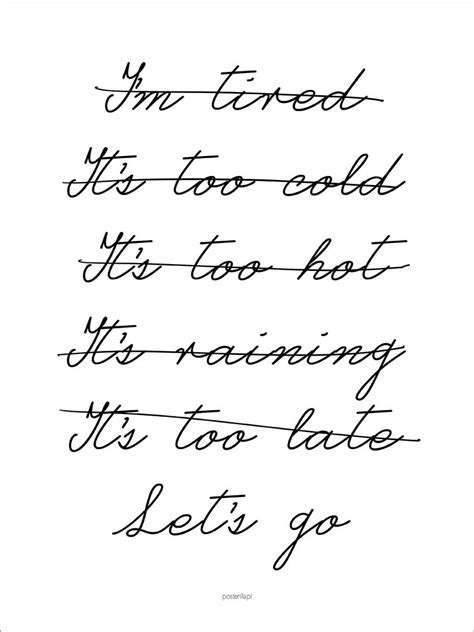 I'm tired
It's too cold
It's too hot
It's raining
It's too late
Let's go
posterilla.pl